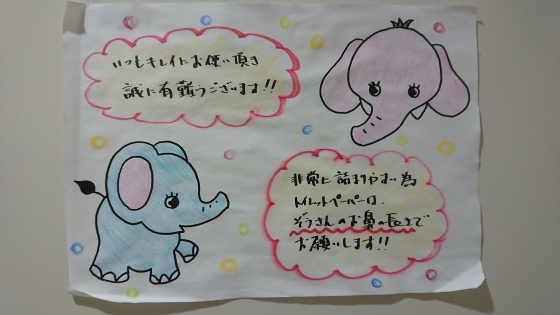 いつもキレイにお使い頂き
誠に有難うございます!!
非常に詰まりやすい為
トイレットペーパーは、
ぞうさんのお鼻の長さで
お願いします!!